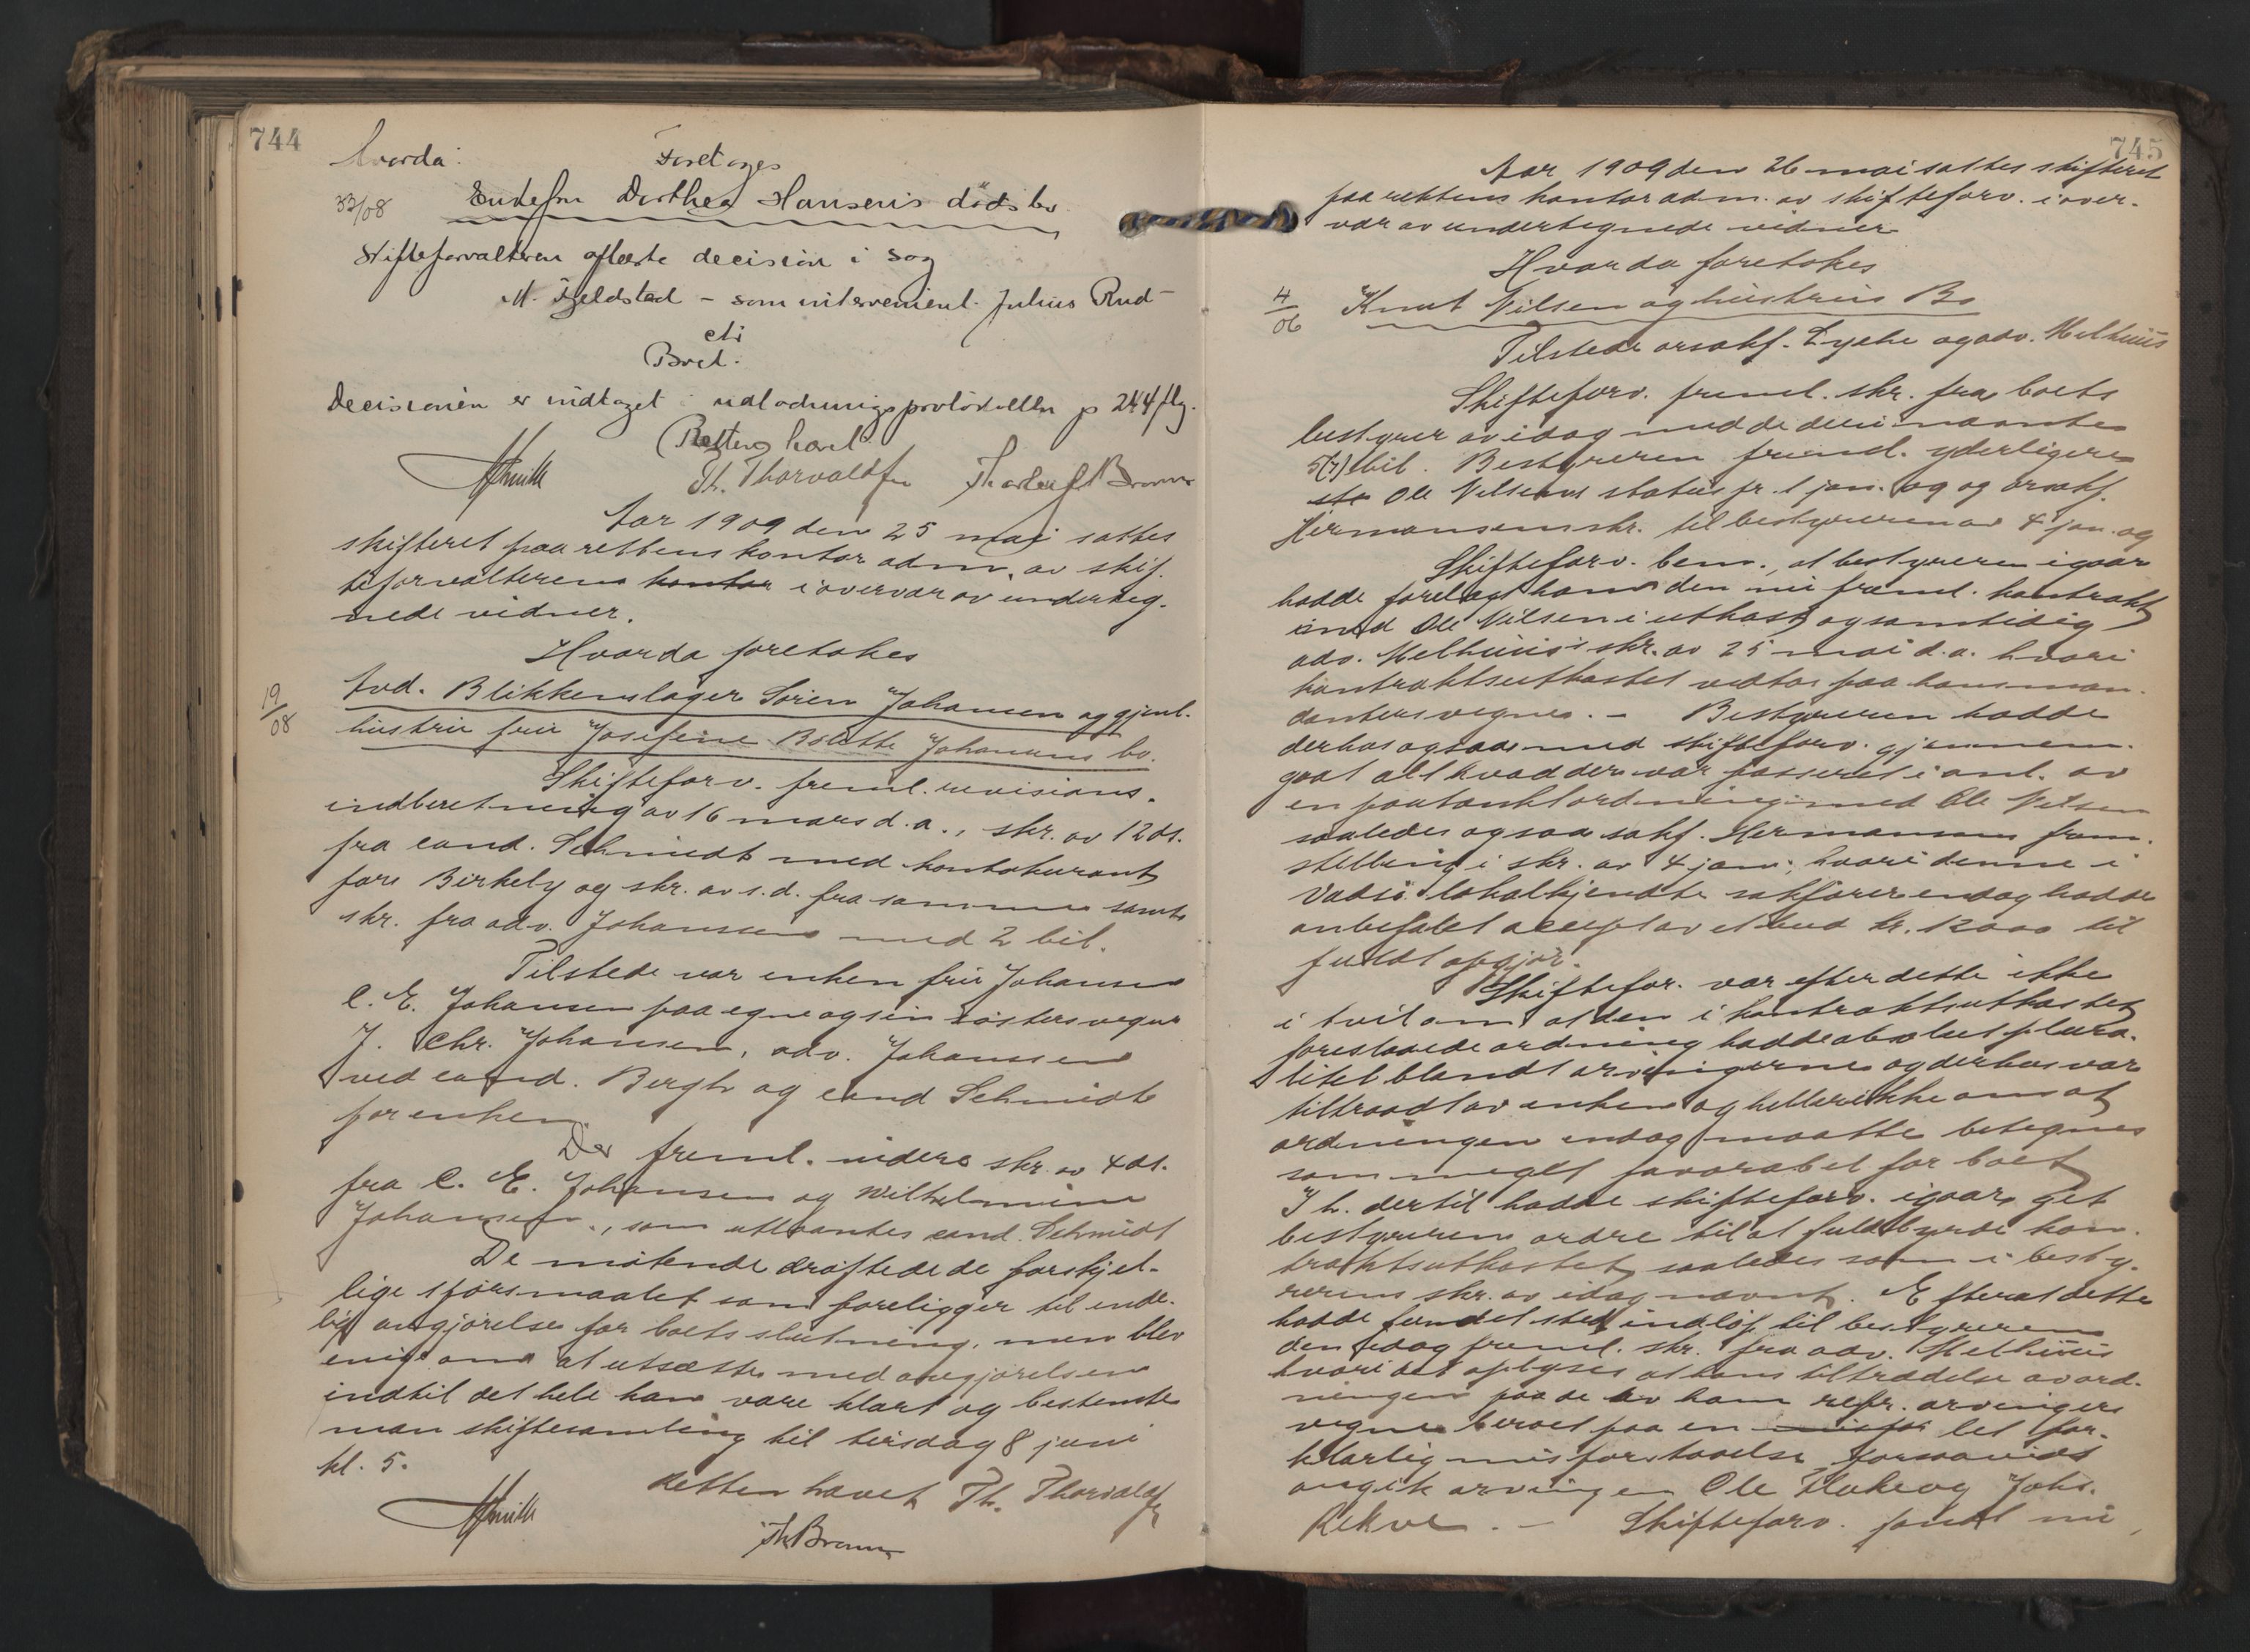 744
Hvorda
Foretages
33/08
Enkefru Dorthea Hansens dödsbo
Skifteforvalteren oplæste decision i sag
M. Fjeldstad – som intervenient Julius Rud –
ctr
Boet.
Decisionen er indtaget i udlodningsprotokollen p 244 flg.
Retten hævet
Th. Thorvaldsen
Aar 1909 den 25 mai sattes
skifteret paa rettens kontor adm. av skif-
teforvalteren kontor i overvær av underteg-
nede vidner.
Hvorda foretokes
19/08
Avd. Blikkenslager Sören Johansen og gjenl.
hustru fru Josefine Bolette Johansens bo.
Skifteforv. freml. revisions-
indberetning av 16 mars d.a., skr. av 12 ds.
fra cand. Schmidt med kontokurant
fors Birkely og skr. av s.d. fra samme samt
skr. fra adv. Johanssen med 2 bil.
Tilstede var enken fru Johansen
C. E. Johansen paa egne og sin søsters vegne
J. Chr. Johansen, adv. Johanssen
ved cand. Bergh og cand Schmidt
for enken.
Der freml. videre skr. av 4 ds.
fra C. E. Johansen og Wilhelmine
Johansen, som utlaantes cand. Schmidt
De møtende drøftede de forskjel-
lige spørsmaalet som foreligger til ende-
lig avgjørelse for boets slutning, men blev
enige om at utsætte med avgjørelsen
indtil det hele kan være klart og bestemte
man skiftesamling til tirsdag 8 juni
kl. 5.
Retten hævet Th. Thorvaldsen
745
Aar 1909 den 26 mai sattes skifteret
paa rettens kontor adm. av skifteforv. i over-
vær av undertegnede vidner
Hvorda foretokes
4/06
Knut Nilsen og hustrus Bo
Tilstede orsakf. Lycke og adv. Melhuus
Skifteforv. freml. skr. fra boets
bestyrer av idag med de deri nævnte
5(7) bil. Bestyreren freml. yderligere
Ole Nilsens status pr. 1 jan. og og orsakf.
Hermansens skr. til bestyreren av 4 jan. og
Skifteforv. bem., at bestyreren igaar
hadde forelagt ham den nu freml. kontrakt
med Ole Nilsen i utkast og samtidig
adv. Melhuus' skr. av 25 mai d.a. hvori
kontraktsutkastet vedtas paa hans man-
danters vegne. – Bestyreren hadde
derhos ogsaa med skifteforv. gjennem-
gaat alt hvad der var passeret i anl. av
en paatænkt ordning med Ole Nilsen
saaledes ogsaa sakf. Hermansens frem-
stilling i skr. av 4 jan., hvori denne i
Vadsø lokalkjendte sakfører endog hadde
anbefalet accept av et bud kr. 12000 til
fuldt opgjør.
Skiftefor. var efter dette ikke
i tvil om at den i kontraktsutkastet
foreslaaede ordning hadde absolut plura-
litet blandt arvingerne og derhos var
tiltraadt av enken og heller ikke om at
ordningen endog maatte betegnes
som meget favorabel for boet
I h. dertil hadde skifteforv. igaar get
bestyreren ordre til at fuldbyrde kon-
traktsutkastet saaledes som i besty-
rerens skr. av idag nævnt. Efterat dette
hadde fundet sted indløp til bestyreren
den idag freml. skr. fra adv. Melhuus
hvori det oplyses at hans tiltrædelse av ord-
ningen paa de av ham repr. arvingers
vegne beroet paa en let for-
klarlig misforstaaelse forsaavidt
angik arvingen Ole Flake og Johs.
Rekve. – Skifteforv. fandt nu